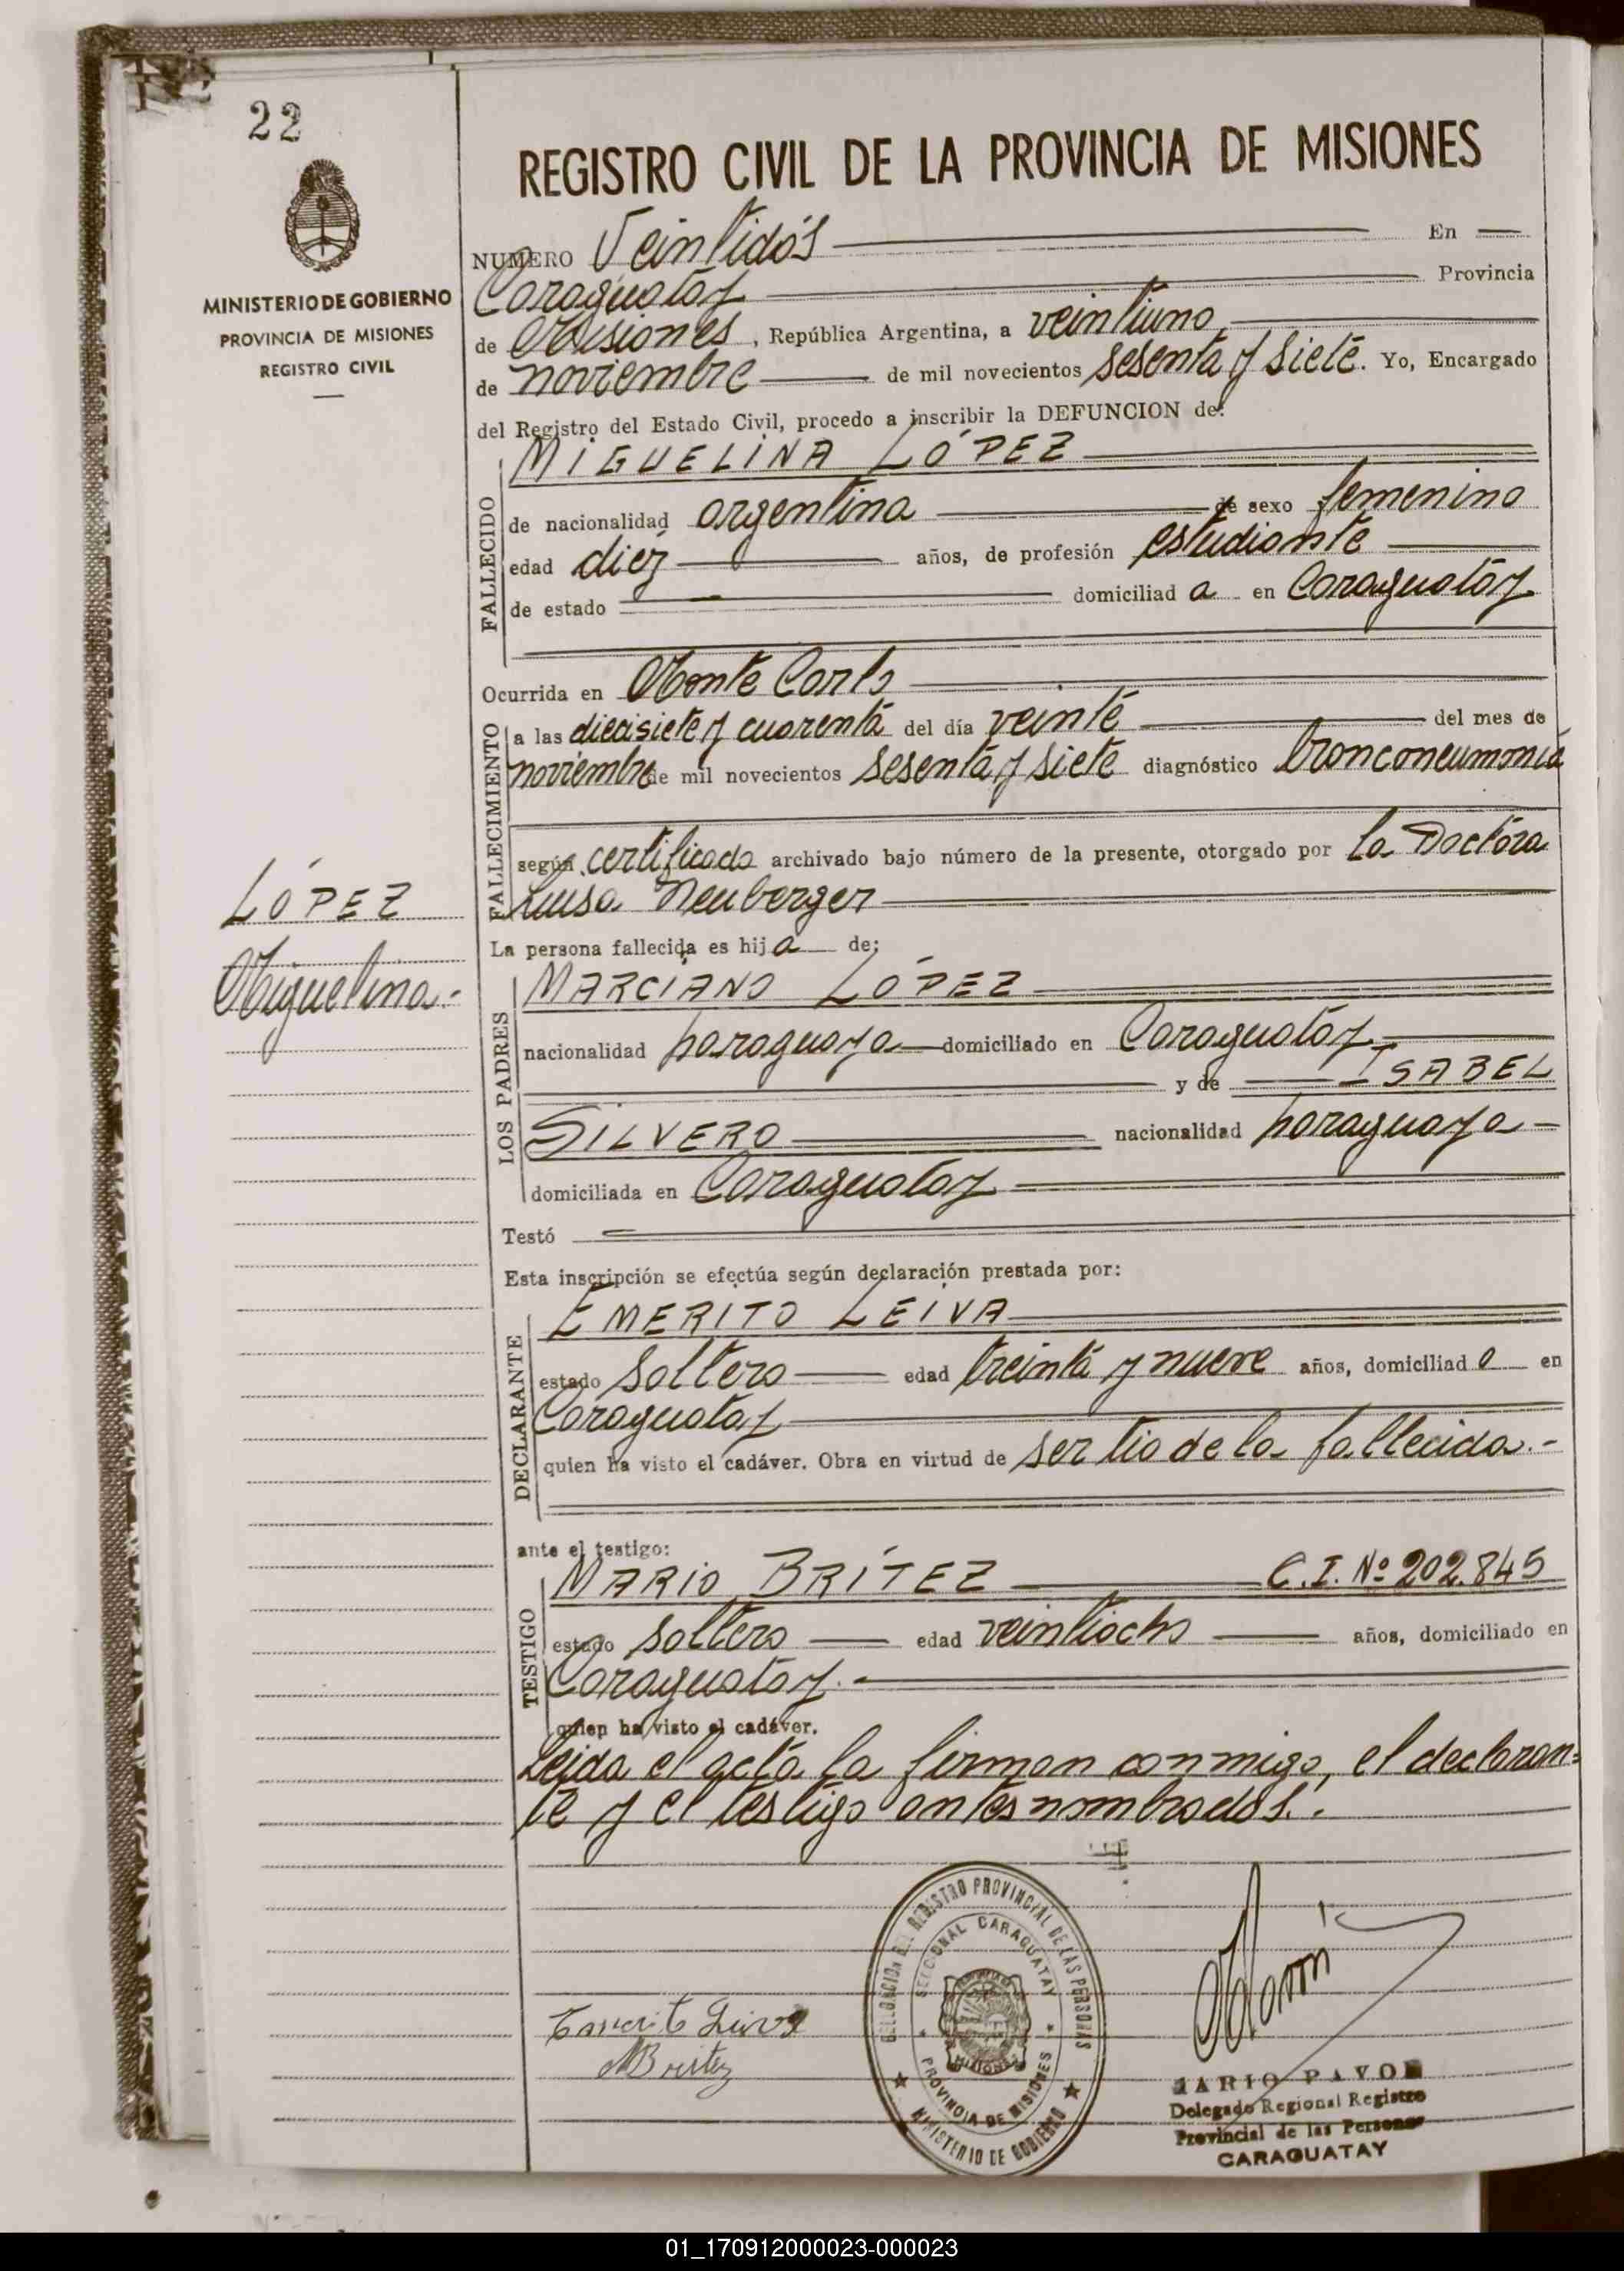 22
MINISTERIO DE GOBIERNO
PROVINCIA DE MISIONES
REGISTRO CIVIL
REGISTRO CIVIL DE LA PROVINCIA DE MISIONES
NUMERO Veintidós En
Caraguatay Provincia
de Misiones, República Argentina, a veintiuno
de noviembre de mil novecientos sesenta y siete. Yo, Encargado
del Registro del Estado Civil, procedo a inscribir la DEFUNCION de:
FALLECIDO
MIGUELINA LÓPEZ
de nacionalidad argentina de sexo femenino
edad diez años, de profesión estudiante
de estado domiciliad a en Caraguatay
Ocurrida en Monte Carlo
FALLECIMIENTO
a las diecisiete y cuarenta del día veinte del mes de
noviembre de mil novecientos sesenta y siete diagnóstico bronconeumonia
según certificado archivado bajo número de la presente, otorgado por la Doctora
Luisa Neuberger
LÓPEZ
Miguelina.-
La persona fallecida es hij a de;
LOS PADRES
MARCIANO LÓPEZ
nacionalidad paraguaya domiciliado en Caraguatay
y de ISABEL
SILVERO nacionalidad paraguaya
domiciliada en Caraguatay
Testó
Esta inscripción se efectúa según declaración prestada por:
DECLARANTE
EMERITO LEIVA
estado soltero edad treinta y nueve años, domiciliad o en
Caraguatay
quien ha visto el cadáver. Obra en virtud de ser tio de la fallecida.-
ante el testigo:
TESTIGO
MARIO BRÍTEZ C.I. Nº 202.845
estado soltero edad veintiocho años, domiciliado en
Caraguatay.
quien ha visto el cadáver.
Leida el acta la firman conmigo, el declaran=
te y el testigo antes nombrados.
DELEGACION DEL REGISTRO PROVINCIAL DE LAS PERSONAS
SECCIONAL CARAGUATAY
MISIONES
PROVINCIA DE MISIONES
MINISTERIO DE GOBIERNO
Emerito Leiva
MBritez
MARIO PAVON
Delegado Regional Registro
Provincial de las Personas
CARAGUATAY
01_170912000023-000023